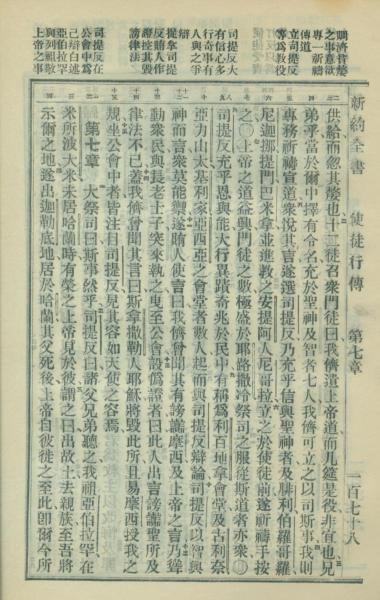 新約全書 使徒行傳 第七章 一百七十八
賙濟貧嫠
之事意欲
專一祈禱
傳道
立司提反
等爲教役
司提反大
有信心多
行奇事有
人與之爭
辯
提拿司提
反賄人作
證控其毀
謗律法
司提反在
公會中爲
己辯白述
亞伯拉罕
與列祖敬
上帝之事
供給而忽其嫠也十二徒召衆門徒曰我儕遺上帝道而几筵是役非宜也兄
弟乎當於爾中擇有令名充於聖神及智者七人我儕可立之以司斯事我則
專務祈禱宣道衆悅其言遂選司提反乃充乎信與聖神者及腓利伯羅哥羅
尼迦挪提門巴米拿並進教之安提阿人尼哥拉立之於使徒前遂祈禱手按
之〇上帝之道益興門徒之數極盛於耶路撒冷祭司之服從斯道者亦衆〇
司提反充乎恩與能大行異蹟奇兆於民中有稱爲利百地拿會堂及古利奈
亞力山太基利家亞西亞之會堂者數人起而與司提反辯論司提反以智與
神而言衆莫能禦遂賄人使言曰我儕曾聞其有謗讟摩西及上帝之言乃聳
動衆民與長老士子突來執之曳至公會設僞證者曰此人出言謗讟聖所及
律法不已蓋我儕曾聞其言曰斯拿撒勒人耶穌將毀此所且易摩西授我之
規坐公會中者皆注目司提反見其容如天使之容焉
第七章 大祭司曰斯事然乎司提反曰諸父兄弟聽之我祖亞伯拉罕在
米所波大米未居哈蘭時有榮之上帝見於彼謂之曰出故土去親族至吾將
示爾之地遂出迦勒底地居於哈蘭其父死後上帝自彼徙之至此卽爾今所